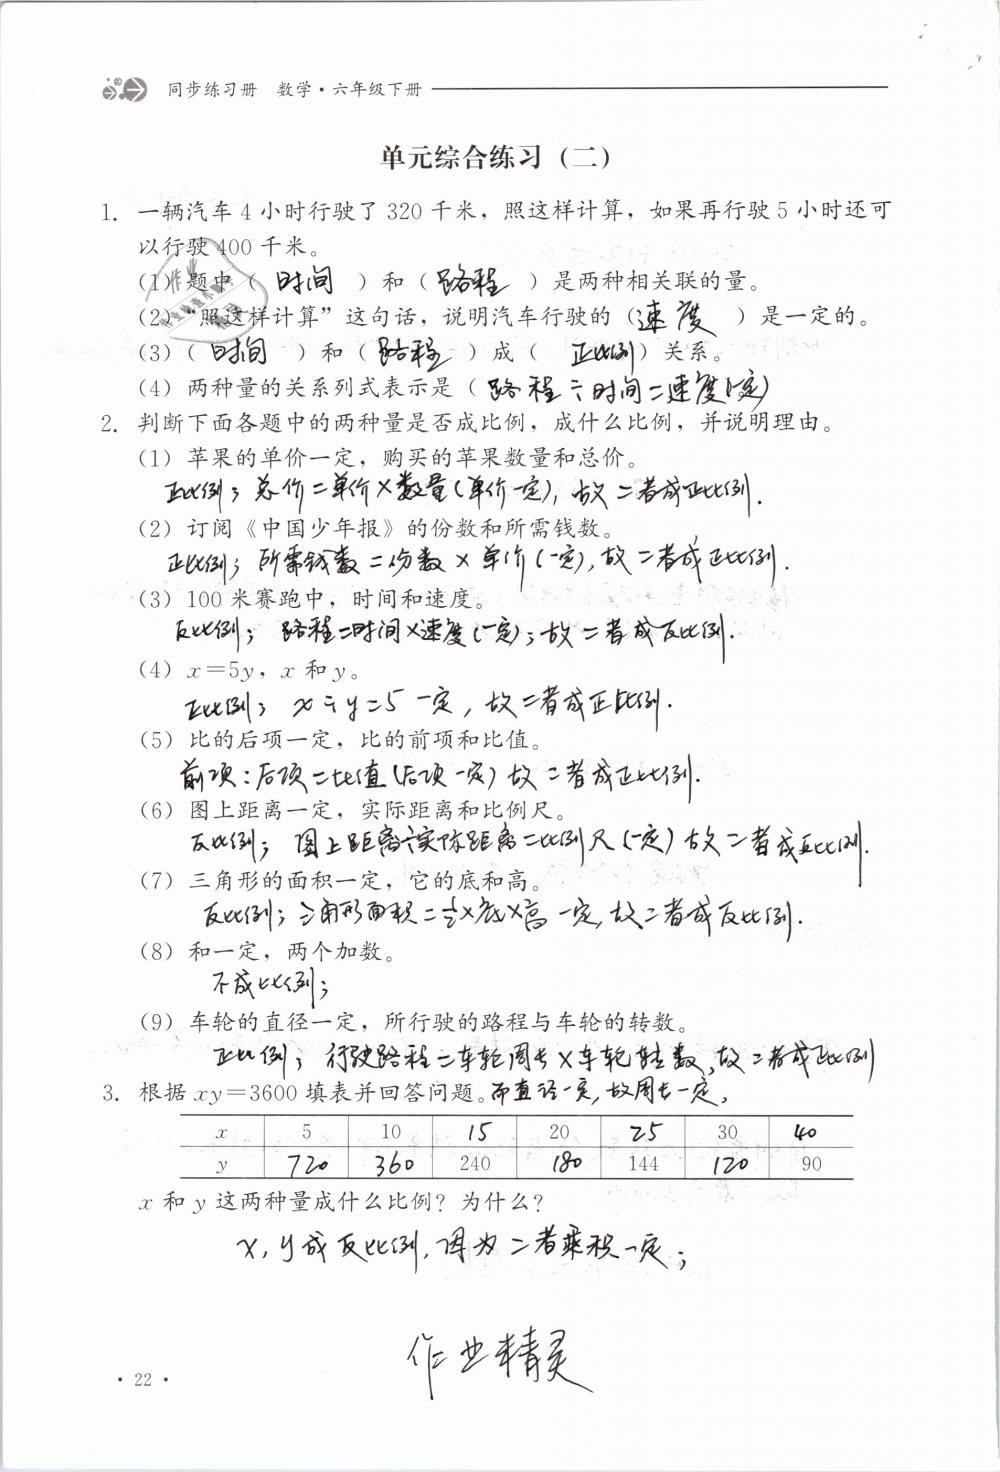 同步练习册 数学·六年级下册
单元综合练习（二）
1. 一辆汽车 4 小时行驶了 320 千米，照这样计算，如果再行驶 5 小时还可
以行驶 400 千米。
（1）题中（ 时间 ）和（ 路程 ）是两种相关联的量。
（2）“照这样计算”这句话，说明汽车行驶的（ 速度 ）是一定的。
（3）（ 时间 ）和（ 路程 ）成（ 正比例 ）关系。
（4）两种量的关系列式表示是（ 路程÷时间=速度(一定)
2. 判断下面各题中的两种量是否成比例，成什么比例，并说明理由。
（1）苹果的单价一定，购买的苹果数量和总价。
正比例；总价=单价×数量(单价一定)，故二者成正比例.
（2）订阅《中国少年报》的份数和所需钱数。
正比例；所需钱数=份数×单价(一定)，故二者成正比例.
（3）100 米赛跑中，时间和速度。
反比例；路程=时间×速度(一定)；故二者成反比例.
（4）x＝5y，x 和 y。
正比例；x÷y=5 一定，故二者成正比例.
（5）比的后项一定，比的前项和比值。
前项:后项=比值(后项一定)故二者成正比例.
（6）图上距离一定，实际距离和比例尺。
反比例；图上距离÷实际距离=比例尺(一定)故二者成反比例.
（7）三角形的面积一定，它的底和高。
反比例；三角形面积=½×底×高 一定，故二者成反比例.
（8）和一定，两个加数。
不成比例；
（9）车轮的直径一定，所行驶的路程与车轮的转数。
正比例；行驶路程=车轮周长×车轮转数，故二者成正比例
3. 根据 xy＝3600 填表并回答问题。而直径一定，故周长一定，
x 5 10 15 20 25 30 40
y 720 360 240 180 144 120 90
x 和 y 这两种量成什么比例？为什么？
x，y成反比例，因为二者乘积一定；
作业精灵
·22·